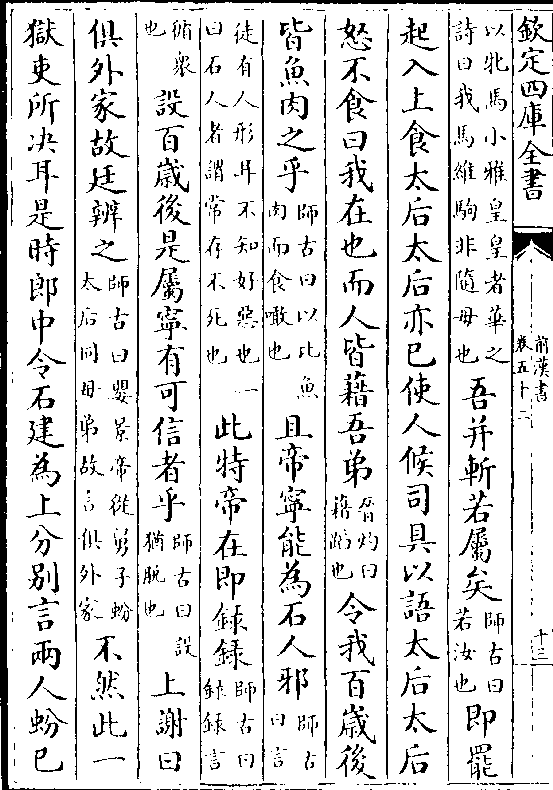 欽定四庫全書
前漢書
卷五十二
十三
以牝馬小雅皇皇者華之
詩曰我馬維駒非隨母也
吾并斬若屬矣
師古曰
若汝也
即罷
起入上食太后太后亦已使人候司具以語太后太后
怒不食曰我在也而人皆藉吾弟
晉灼曰
藉蹈也
令我百歲後
皆魚肉之乎
師古曰以比魚
肉而食噉也
且帝寧能為石人邪
師古
曰言
徒有人形耳不知好惡也一
曰石人者謂常存不死也
此特帝在即錄錄
師古曰
錄錄言
循衆
也
設百歲後是屬寧有可信者乎
師古曰設
猶脫也
上謝曰
俱外家故廷辨之
師古曰嬰景帝從舅子蚡
太后同母弟故言俱外家
不然此一
獄吏所决耳是時郎中令石建為上分别言兩人蚡已